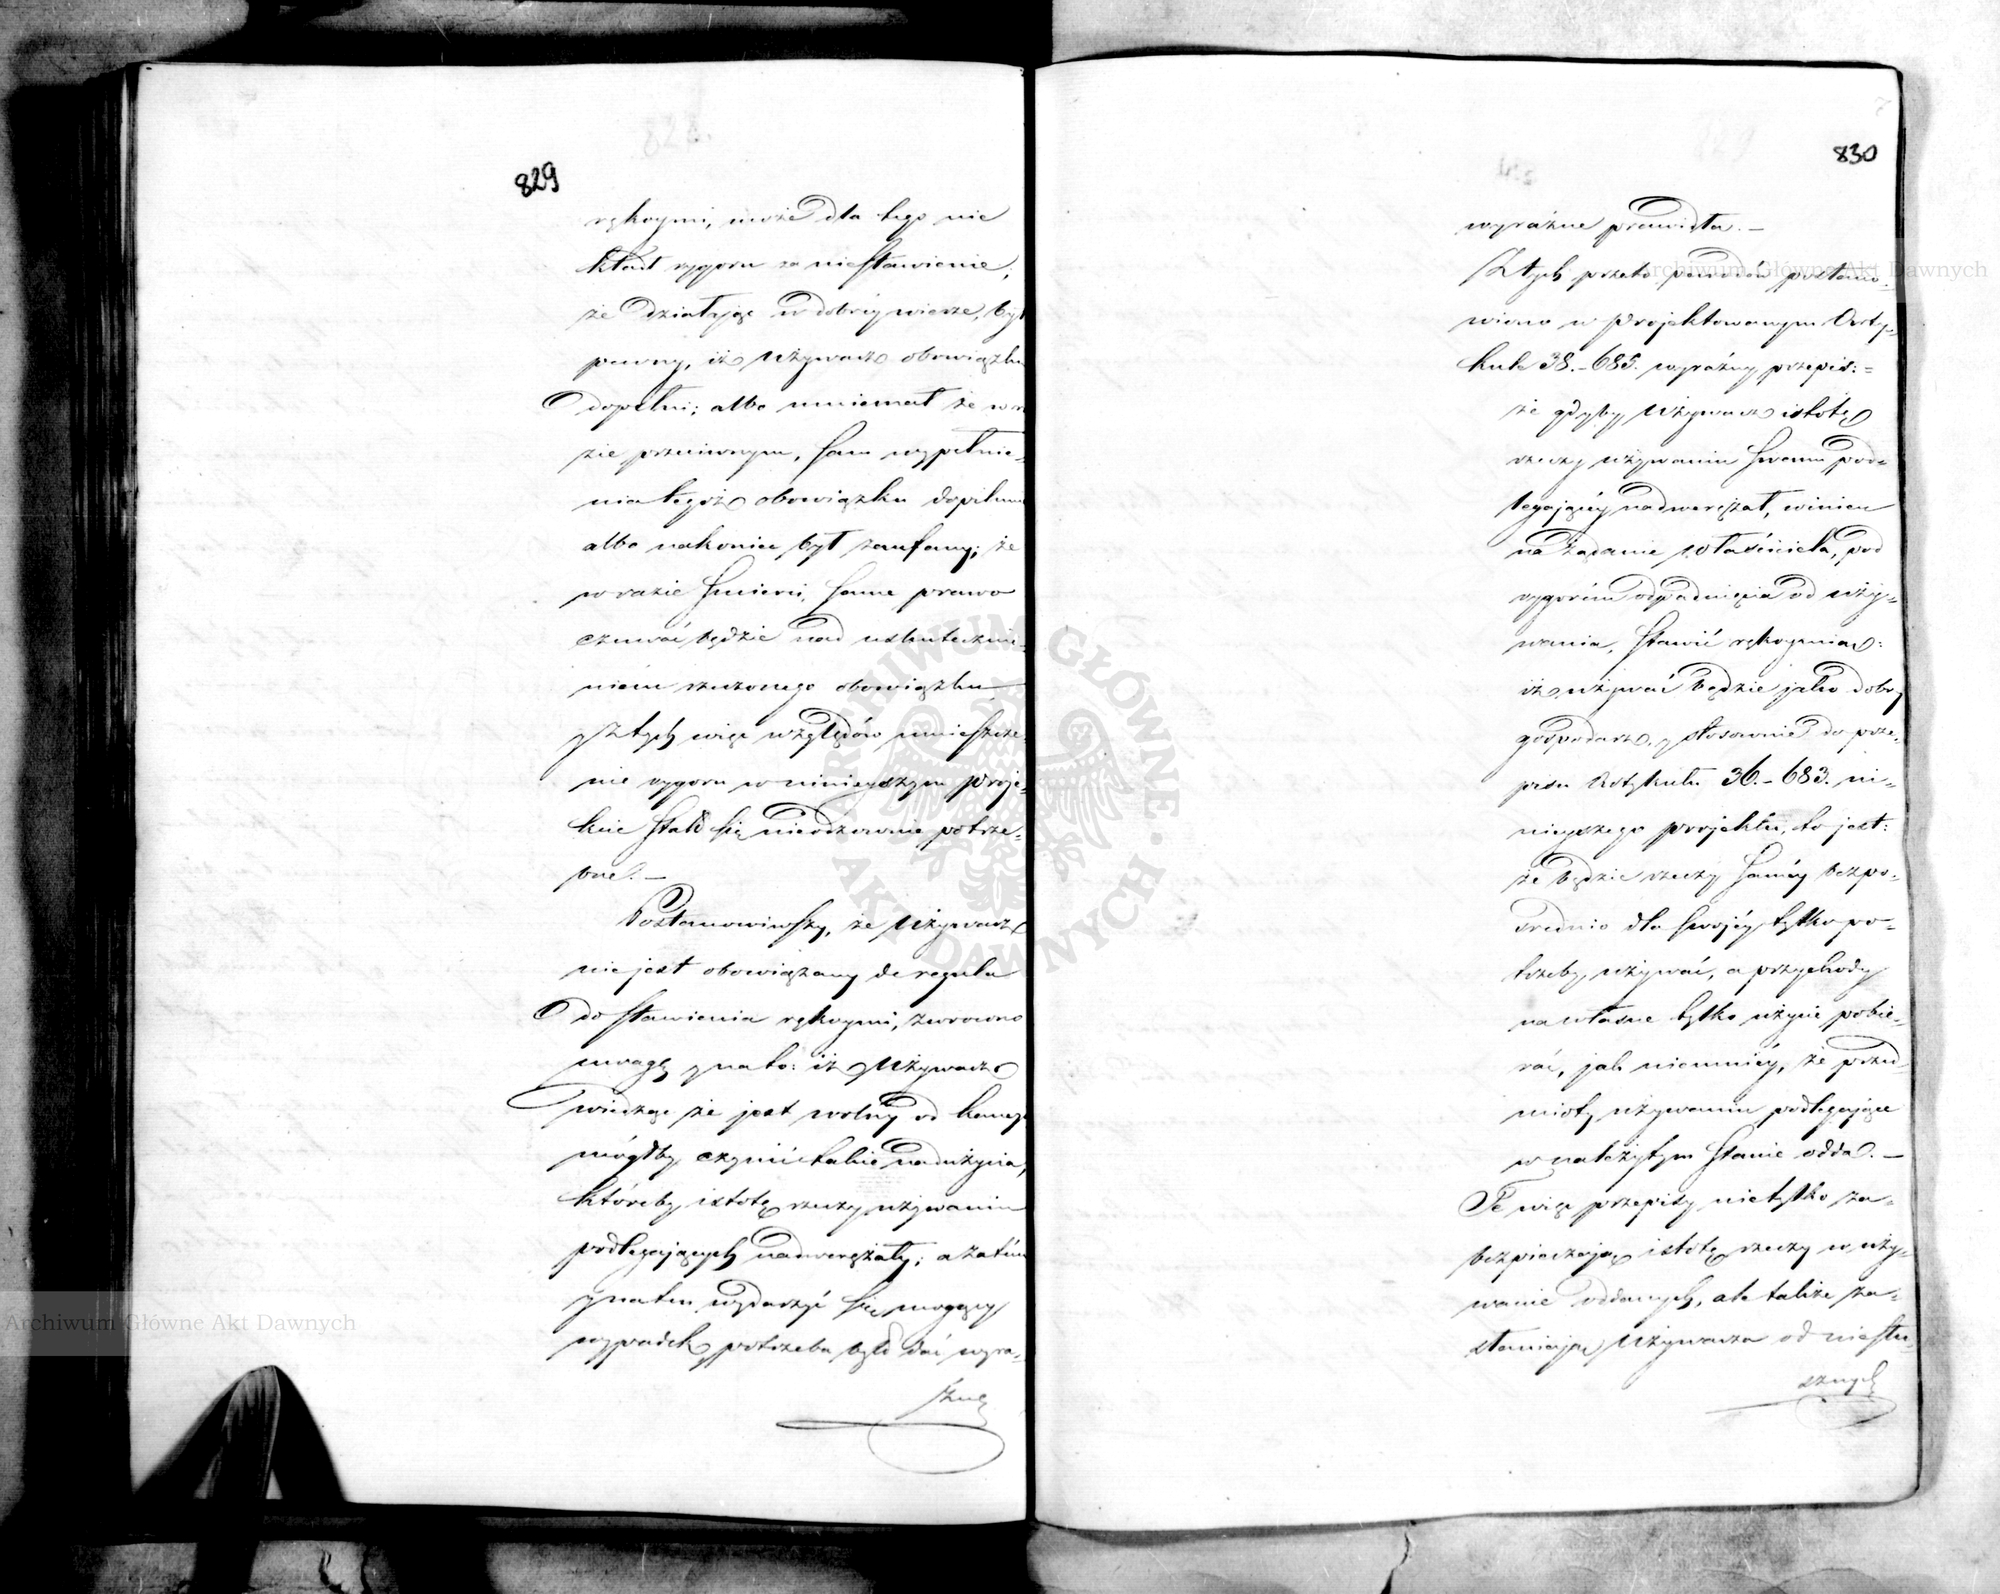 829
rękoymi, może dla tego nie
kładł rygoru za niestawienie,
że działając w dobréy wierze, był
pewny, iż Używacz obowiązku
dopełni; albo mniemał że w ra
zie przeciwnym, sam wypełnie-
nia tegoż obowiązku dopilnu
albo nakoniec był zaufany; że
w razie śmierci, same prawo
czuwać będzie nad uskutecznie-
niém rzeczonego obowiązku
y z tych więc względów umieszcze-
nie rygoru w ninieyszym Proje-
kcie stało się nieodzownie potrze-
bne. —
Postanowiwszy, że Używacz
nie jest obowiązany de regula
do stawienia rękoymi, zwrócono
uwagę y na to: iż Używacz
wiedząc że jest wolny od kaucyi
mógłby czynić takie nadużycia,
któreby istotę rzeczy używaniu
podlegających nadwerężały; a zatém
y na ten wydarzyć się mogący
wypadek potrzeba było dać wyra-
źne
830
wyraźne prawidła. —
Z tych przeto powodów postano-
wiono w Projektowanym Arty-
kule 38.-685. wyraźny przepis:
że gdyby Używacz istotę
rzeczy używaniu swemu pod-
legającéy nadwerężał, winien
na żądanie właściciela, pod
rygorém odpadnięcia od uży-
wania, stawić rękoymią:
iż używać będzie jako dobry
gospodarz, y stosownie do prze-
pisu Artykułu 36.-683. ni-
nieyszego projektu, to jest:
że będzie rzeczy saméy bezpo-
średnio dla swojéy tylko po-
trzeby używać, a przychody
na własne tylko użycie pobie-
rać, jak niemniéy, że przed-
mioty używaniu podlegające
w należytym stanie odda. —
Te więc przepisy nietylko za-
bezpieczają istotę rzeczy w uży-
wanie oddanych, ale także za-
słaniają Używacza od niesłu-
sznych
Archiwum Główne Akt Dawnych
Archiwum Główne Akt Dawnych
ARCHIWUM GŁÓWNE
AKT DAWNYCH